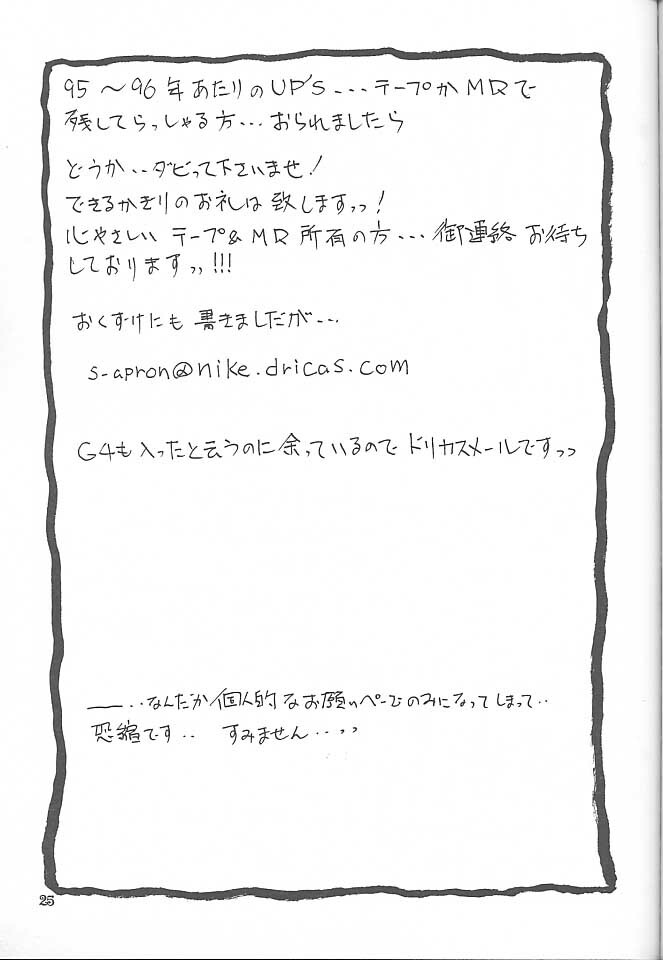 95〜96年あたりのUP'S...テープかMDで
残してらっしゃる方...おられましたら
どうか..ダビって下さいませ!
できるかぎりのお礼は致しますっっ!
心やさしい テープ&MD所有の方...御連絡お待ち
しておりますっっ!!!
おくずけにも書きましたが...
s-apron@nike.dricas.com
G4も入ったと云うのに余っているのでドリカスメールですっっ
――..なんだか個人的なお願いぺーじのみになってしまって..
恐縮です.. すみません..っっ
25